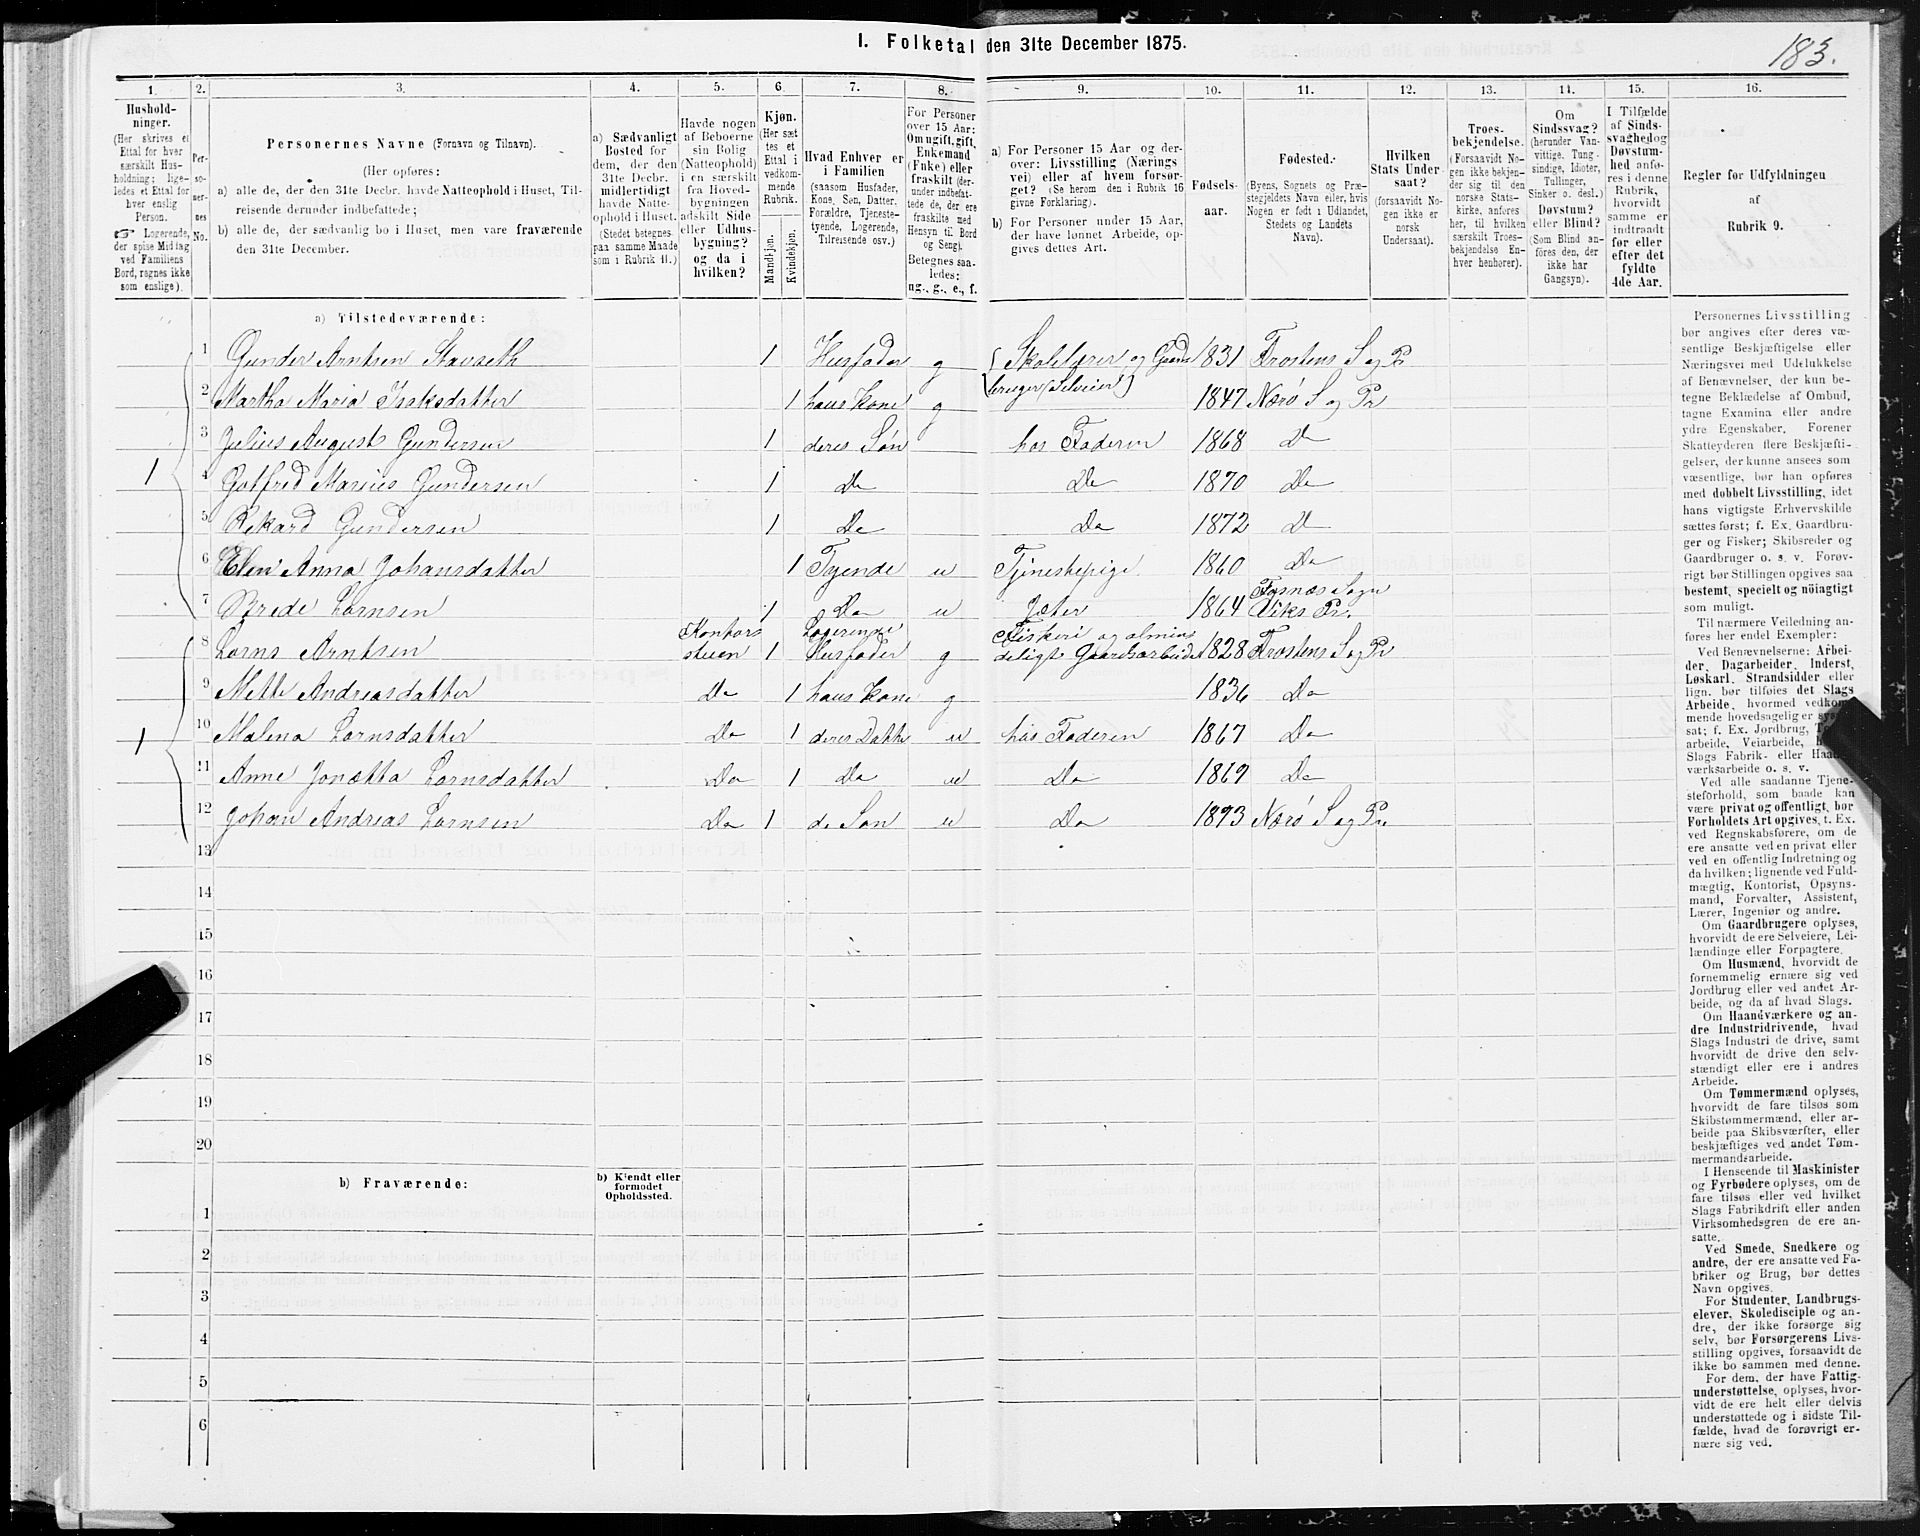 I. Folketal den 31te December 1875.
183.
1. 2. 3. 4. 5. 6. 7. 8. 9. 10. 11. 12. 13. 14. 15. 16.
Hushold-
ninger.
(Her skrives et
Ettal for hver
særskilt Hus-
holdning; lige-
ledes et Ettal for
hver enslig
Person.
☞ Logerende,
der spise Middag
ved Familiens
Bord, regnes ikke
som enslige).
Per-
so-
ner-
nes
No.
Personernes Navne (Fornavn og Tilnavn).
(Her opføres:
a) alle de, der den 31te Decbr. havde Natteophold i Huset, Til-
reisende derunder indbefattede;
b) alle de, der sædvanlig bo i Huset, men vare fraværende
den 31te December.
a) Sædvanligt
Bosted for
dem, der den
31te Decbr.
midlertidigt
havde Natte-
ophold i Huset.
(Stedet betegnes
paa samme Maade
som i Rubrik 11.)
Havde nogen
af Beboerne
sin Bolig
(Natteophold)
i en særskilt
fra Hoved-
bygningen
adskilt Side
eller Udhus-
bygning?
og da i
hvilken?
Kjøn.
(Her sæt
tes et
Ettal i
vedkom-
mende
Rubrik.
Mandkjøn.
Kvindekjøn.
Hvad Enhver er
i Familien
(saasom Husfader,
Kone, Søn, Datter,
Forældre, Tjeneste-
tyende, Logerende,
Tilreisende osv.)
For Personer
over 15 Aar:
Om ugift, gift,
Enkemand
(Enke) eller
fraskilt (der-
under indbefat-
tede de, der ere
fraskilte med
Hensyn til Bord
og Seng).
Betegnes saa-
ledes:
ug., g., e., f.
a) For Personer 15 Aar og der-
over: Livsstilling (Nærings
vei) eller af hvem forsør-
get? (Se herom den i Rubrik 16
givne Forklaring).
b) For Personer under 15 Aar,
der have lønnet Arbeide, op-
gives dettes Art.
Fødsels-
aar.
Fødested.
(Byens, Sognets og Præ-
stegjeldets Navn, eller, hvis
Nogen er født i Udlandet,
Stedets og Landets
Navn).
Hvilken
Stats Under-
saat?
(forsaavidt No-
gen ikke er
norsk
Undersaat).
Troes-
bekjendelse.
(Forsaavidt No-
gen ikke bekjen-
der sig til den
norske Stats-
kirke, anføres
her, til hvilken
særskilt Troes-
bekjendelse En-
hver henhører).
Om
Sindssvag?
(herunder Van-
vittige, Tung-
sindige, Idioter,
Tullinger,
Sinker o. desl.)
Døvstum?
eller Blind?
(Som Blind an-
føres den, der
ikke har
Gangsyn).
I Tilfælde
af Sinds-
svaghed og
Døvstum-
hed anfø-
res i denne
Rubrik,
hvorvidt
samme er
indtraadt
før eller
efter det
fyldte
4de Aar.
Regler for Udfyldningen
af
Rubrik 9.
a) Tilstedeværende:
1 Gunder Arntsen Stavseth 1 Husfader g Skolelærer og Gaard 1831 Frostens S og Pr
bruger (Selveier)
2 Martha Maria Isaksdatter 1 hans Kone g 1847 Nærø S og Pr
3 Julius August Gundersen 1 deres Søn hos Faderen 1868 D
1
4 Gotfred Marius Gundersen 1 Do Do 1870 Do
5 Rikard Gundersen 1 Do Do 1872 D
6 Elen Anna Johansdatter 1 Tyende u Tjenestepige 1860 Do
7 Brede Lornsen 1 Do u Jæter 1864 Fosnæs Sogn
Viks Pr.
8 Lorns Arntsen Kontors
stuen 1 Logerende
Husfader g Fiskeri og almin
deligt Gaardsarbeide 1828 Frostens S og Pr
9 Mette Andreasdatter Do 1 hans Kone g 1836 Do
1
10 Malena Lornsdatter Do 1 deres Datte u hos Faderen 1867 Do
11 Anne Jonetta Lornsdatter Do 1 Do u Do 1869 Do
12 Johan Andreas Lornsen Do 1 d Søn u Do 1873 Nærø S og Pr
13
14
15
16
17
18
19
20
b) Fraværende:
b) Kjendt eller
formodet
Opholdssted.
1
2
3
4
5
6
Personernes Livsstilling
bør angives efter deres væ-
sentlige Beskjæftigelse eller
Næringsvei med Udelukkelse
af Benævnelser, der kun be-
tegne Beklædelse af Ombud,
tagne Examina eller andre
ydre Egenskaber. Forener
Skatteyderen flere Beskjæfti-
gelser, der kunne ansees som
væsentlige, bør han opføres
med dobbelt Livsstilling, idet
hans vigtigste Erhvervskilde
sættes først; f. Ex. Gaardbru-
ger og Fisker; Skibsreder og
Gaardbruger o. s. v. Forøv-
rigt bør Stillingen opgives saa
bestemt, specielt og nøiagtigt
som muligt.
Til nærmere Veiledning an-
føres her endel Exempler:
Ved Benævnelserne: Arbei-
der, Dagarbeider, Inderst,
Løskarl, Strandsidder eller
lign. bør tilføies det Slags
Arbeide, hvormed vedkom-
mende hovedsagelig er syssel-
sat; f. Ex. Jordbrug,
arbeide, Veiarbeide,
Slags Fabrik- eller
værksarbeide o. s. v.
Ved alle saadanne Tjene-
steforhold, som baade kan
være privat og offentligt, bør
Forholdets Art opgives, f. Ex.
ved Regnskabsførere, om de
ere ansatte ved en privat eller
ved en offentlig Indretning og
da hvilken; lignende ved Fuld-
mægtig, Kontorist, Opsyns-
mand, Forvalter, Assistent,
Lærer, Ingeniør og andre.
Om Gaardbrugere oplyses,
hvorvidt de ere Selveiere, Lei-
lændinge eller Forpagtere.
Om Husmænd, hvorvidt de
fornemmelig ernære sig ved
Jordbrug eller ved andet Ar-
beide, og da af hvad Slags.
Om Haandværkere og an-
dre Industridrivende, hvad
Slags Industri de drive, samt
hvorvidt de drive den selv-
stændigt eller ere i andres
Arbeide.
Om Tømmermænd oplyses,
hvorvidt de fare tilsøs som
Skibstømmermænd, eller ar-
beide paa Skibsværfter, eller
beskjæftiges ved andet Tøm-
mermandsarbeide.
I Henseende til Maskinister
og Fyrbødere oplyses, om de
fare tilsøs eller ved hvilket
Slags Fabrikdrift eller anden
Virksomhedsgren de ere an-
satte.
Ved Smede, Snedkere og
andre, der ere ansatte ved Fa-
briker og Brug, bør dettes
Navn opgives.
For Studenter, Landbrugs-
elever, Skoledisciple og an-
dre, der ikke forsørge sig
selv, bør Forsørgerens Livs-
stilling opgives, forsaavidt de
ikke bo sammen med denne.
For dem, der have Fattig-
understøttelse, oplyses, hvor-
vidt de ere helt eller delvis
understøttede og i sidste Til-
fælde, hvad de forøvrigt er-
nære sig ved.